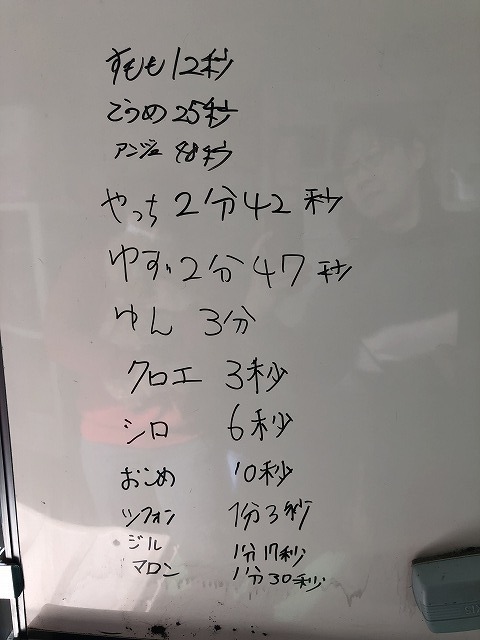 すもも 12秒
こうめ 25秒
アンジュ 48秒
やっち 2分42秒
ゆず 2分47秒
ゆん 3分
クロエ 3秒
シロ 6秒
おこめ 10秒
ツフォン 1分3秒
ジル 1分17秒
マロン 1分30秒